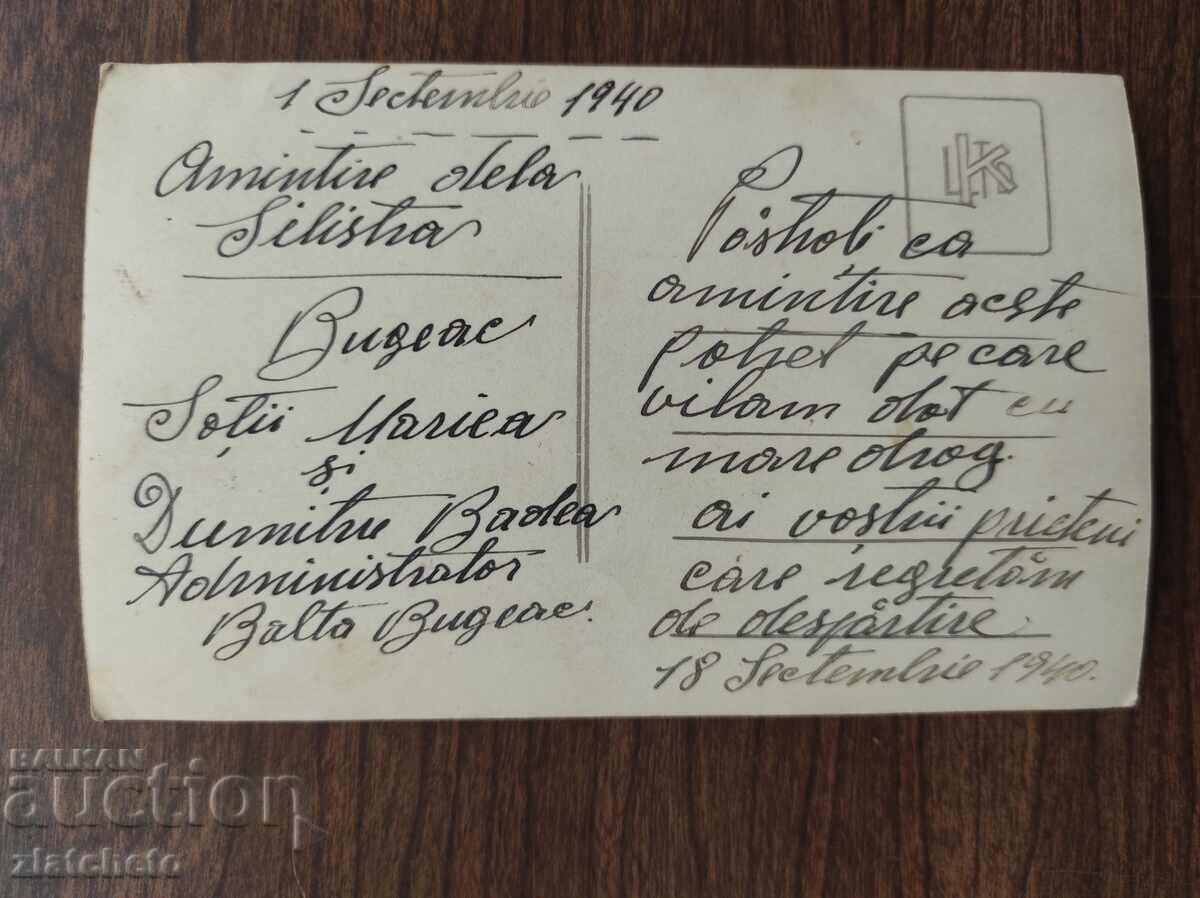 1 Sectembrie 1940
Amintire dela
Silistra
Bugeac
Soții Marica
și
Dumitru Badea
Administrator
Balta Bugeac.
ca
amintire aceste
pe care
vilam dat cu
mare drag.
ai vostrii prieteni
care regretăm
de despărtire
18 Sectembrie 1940.
BALKAN
auction
zlatcheto